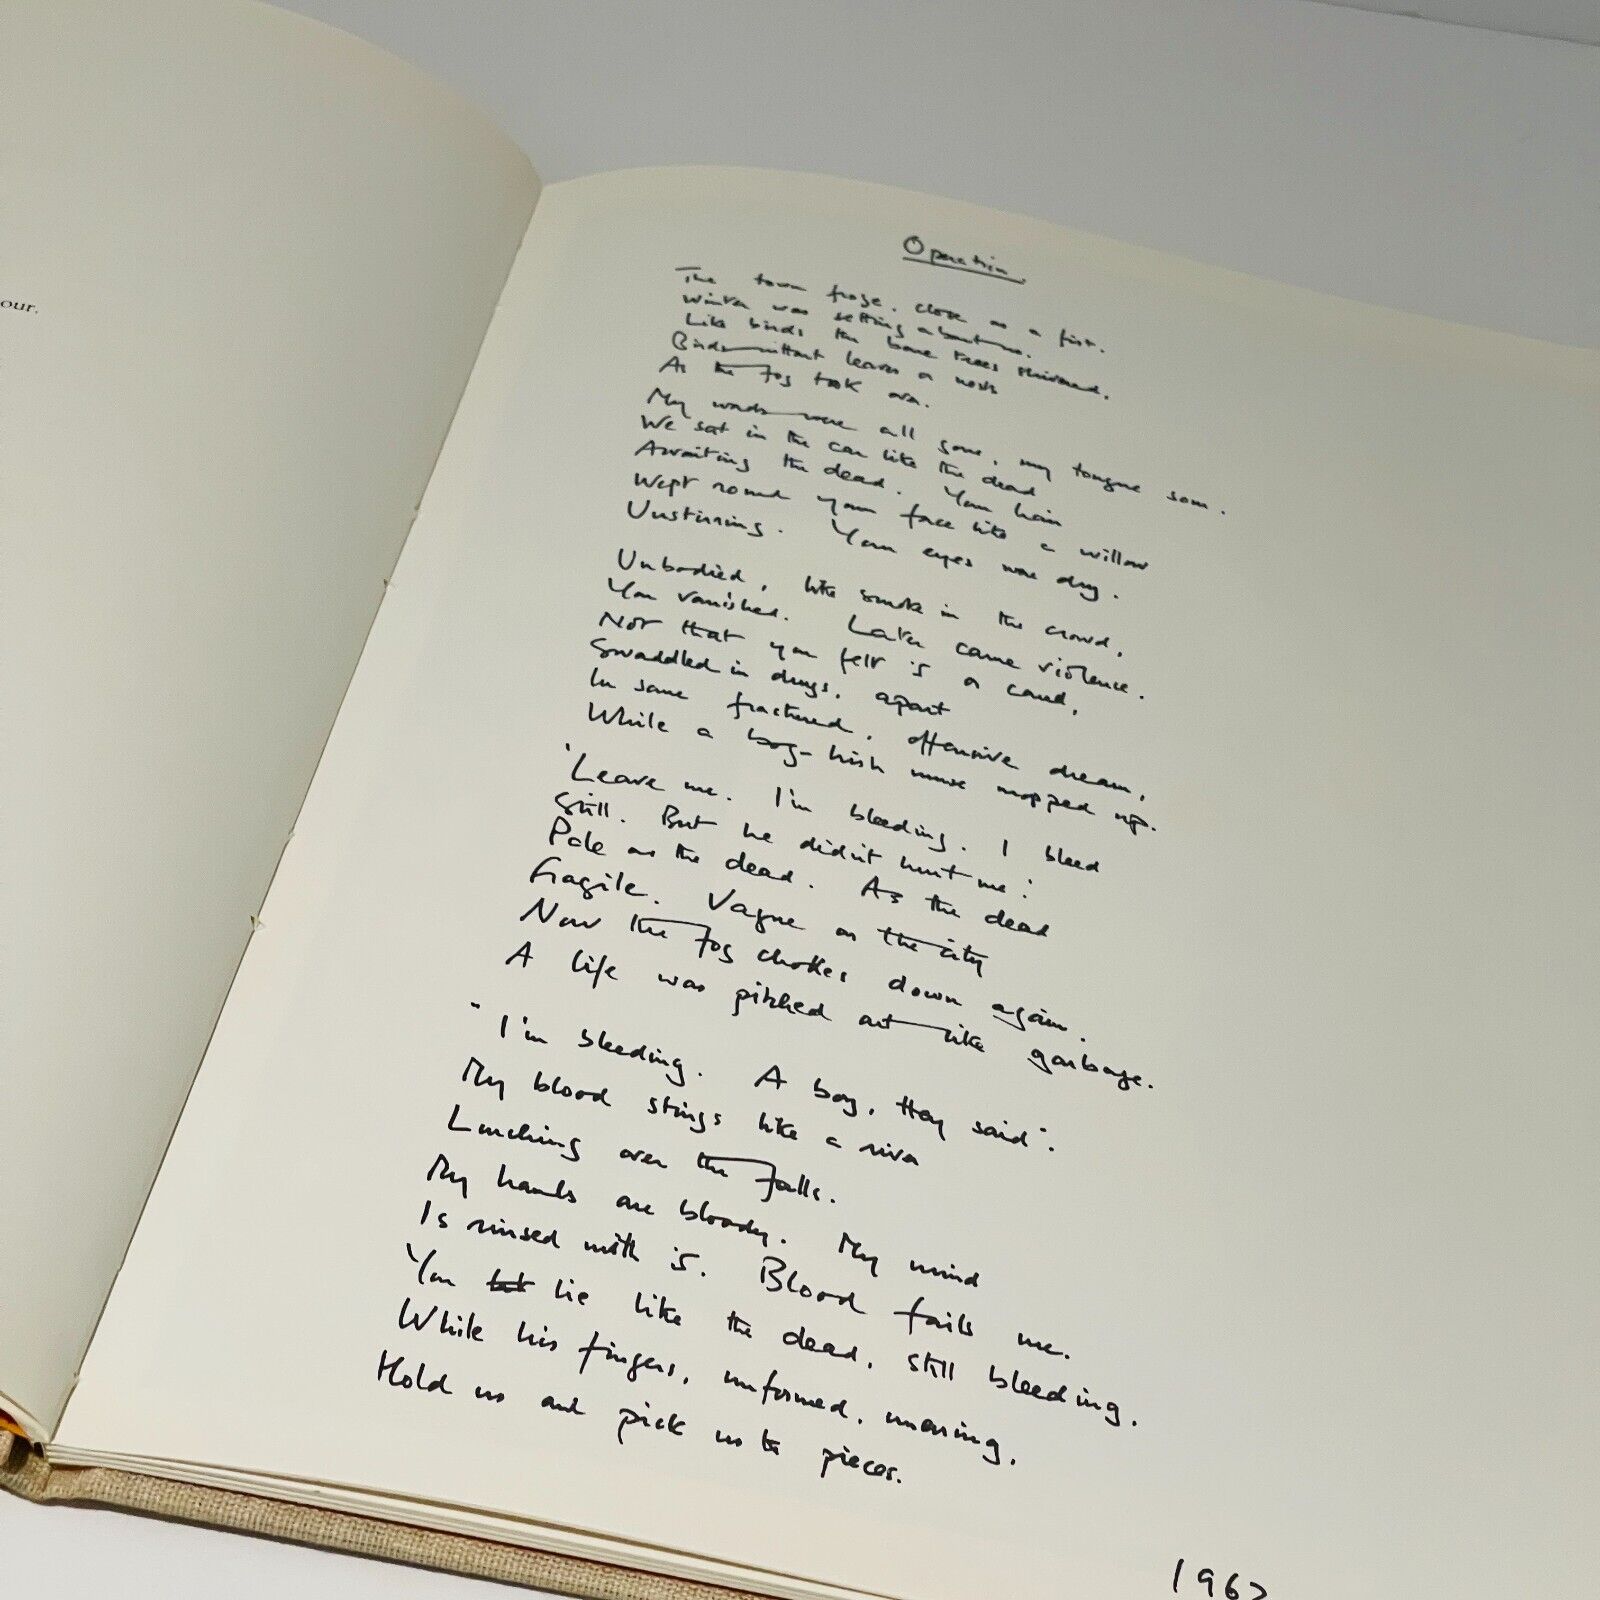 our.
Operation
The town froze, close as a fist.
Winter was setting about us.
Like birds the bone trees shivered,
Birds without leaves or nests
As the fog took over.
My words were all gone, my tongue sour.
We sat in the car like the dead
Awaiting the dead. Your hair
Wept round your face like a willow
Unstirring. Your eyes were dry.
Unbodied, like smoke in the crowd,
You vanished. Later came violence.
Not that you felt it or cared,
Swaddled in drugs, apart
In some fractured, offensive dream,
While a boy-Irish nurse mopped up.
'Leave me. I'm bleeding. I bleed
Still. But he didn't hurt me.'
Pale as the dead. As the dead
Fragile. Vague as the city
Now the fog chokes down again.
A life was pitched out like garbage.
"I'm bleeding. A boy, they said".
My blood stings like a river
Lurching over the falls.
My hands are bloody. My mind
Is rinsed with it. Blood fails me.
You lie like the dead, still bleeding,
While his fingers, unformed, unerring,
Hold us and pick us to pieces.
1962